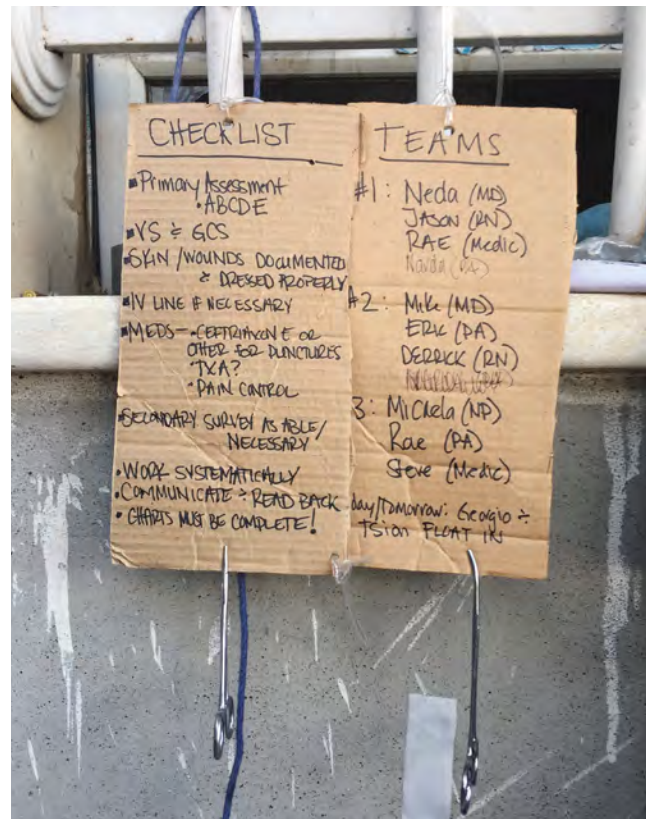 CHECKLIST
▪Primary Assessment
•ABCDE
▪VS & GCS
▪SKIN/WOUNDS DOCUMENTED
& DRESSED PROPERLY
▪IV LINE IF NECESSARY
▪MEDS - •CEFTRIAXONE OR
OTHER FOR PUNCTURES
•TXA?
•PAIN CONTROL
•SECONDARY SURVEY AS ABLE/
NECESSARY
•WORK SYSTEMATICALLY
•COMMUNICATE & READ BACK
•CHARTS MUST BE COMPLETE!
TEAMS
#1: Neda (MD)
JASON (RN)
RAE (Medic)
#2: Mike (MD)
ERIK (PA)
DERRICK (RN)
3: Michela (NP)
Rae (PA)
Steve (Medic)
day/Tomorrow: Georgio &
Tsion FLOAT IN